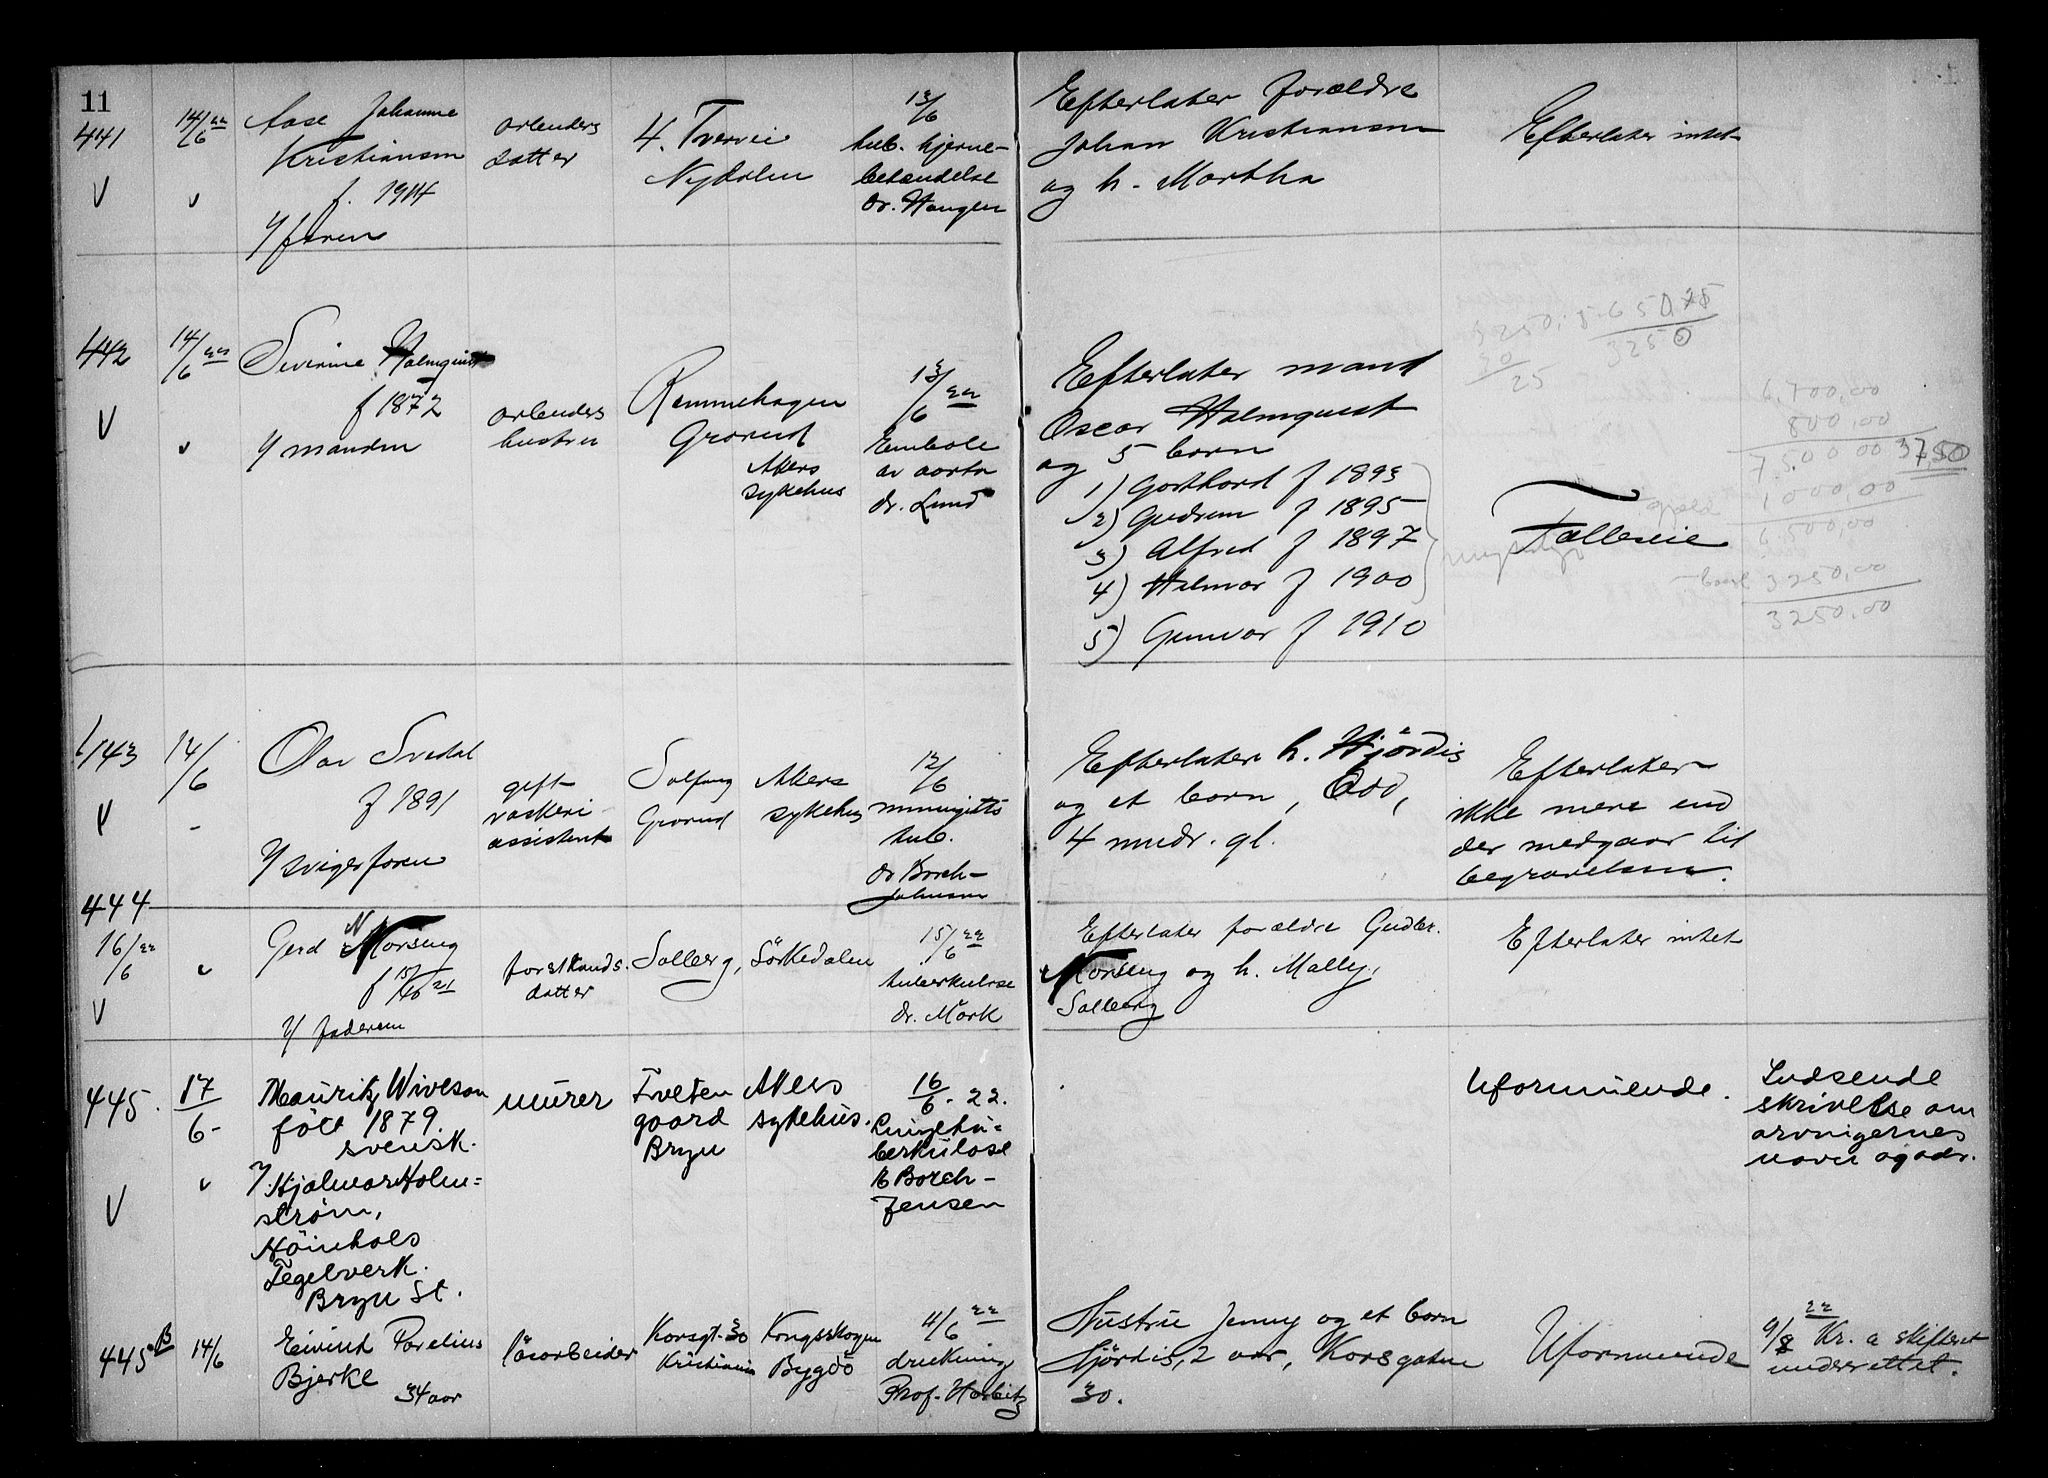 11
441
14/6 22
Aase Johanne
Kristiansen
f. 1914
v/ faren
arbeiders
datter
4. Tvervei
Nydalen
13/6
tub. hjerne-
betændelse
dr. Haugen
Efterlater forældre
Johan Kristiansen
og h. Martha
Efterlater intet
442
14/6 22
Severine Halmquist
f 1872
v/ manden
arbeiders
hustru
Rammehagen
Grorud
Akers
sykehus
13/6 22
Embole
av aorta
dr. Lund
Efterlater mand
Oscar Halmquist
og 5 børn
1) Gothard f 1893
2) Gudrun f 1895
3) Alfred f 1897
4) Halmar f 1900
5) Gunvor f 1910
myndige
Fælleseie
3250
25
6.700,00
800,00
7500,00 37,50
gjæld 1000,00
6.500,00
3250,00
3250,00
443
14/6
Olav Svedal
f 1891
v/ svigerfaren
gift
vaskeri
assistent
Solfang
Grorud
Akers
sykehus
12/6
meningitis
tub.
dr Borch-
Johnsen
Efterlater h. Hjördis
og et barn, Odd,
4 mndr. gl.
Efterlater
ikke mere end
der medgaar til
begravelsen.
444
16/6 22
Gerd Norseng
f 15/10 21
v/ faderen
forstkands.
datter
Solberg, Sörkedalen
15/6 22
tuberkulose
dr. Mørk
Efterlater forældre Gudbr.
Norseng og h. Mally,
Solberg
Efterlater intet
445.
17/6-
Mauritz Wiveson
född 1879.
svensk.
v/ Hjalmar Holm=
strøm,
Höienhals
Tegelverk.
Bryn St.
murer
Tveten
gaard
Bryn
Akers
sykehus.
16/6. 22.
Lungetu=
berkulose
Borch-
Jensen
Uformuende.
Indsende
skrivelse om
arvingernes
navn og adr.
445 B
14/6
Eivind Porelius
Bjerke
34 aar
løsarbeider
Korsgt. 30
Kristiania
Kongsskogen
Bygdö
11/6 22
drukning
Prof. Harbitz
Hustru Jenny og et barn
Hjördis, 2 aar, Korsgaten
30.
Uformuende
9/8 22 Kr. a skifteret
underrettet.